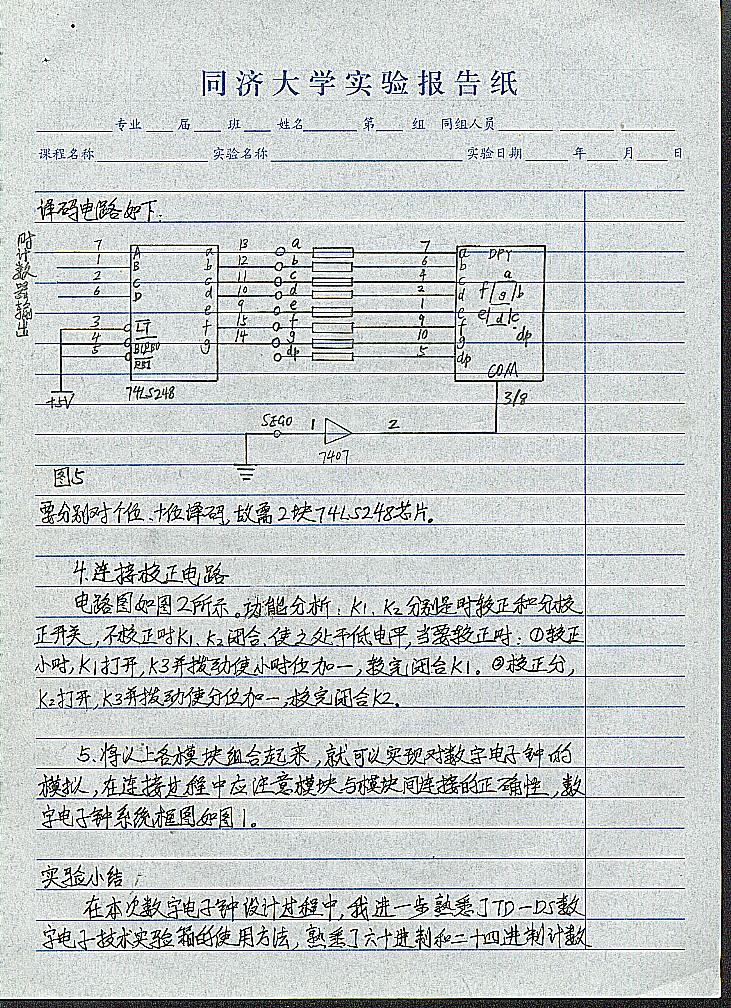 同济大学实验报告纸
专业 届 班 姓名 第 组 同组人员
课程名称 实验名称 实验日期 年 月 日
译码电路如下:
时计数器输出
7 A a 13 a 7 a DPY
1 B b 12 b 6 b
2 C c 11 c 4 c a
6 D d 10 d 2 d f g b
e 9 e 1 e e d c
3 LT f 15 f 9 f dp
4 BI/RBO g 14 g 10 g
5 RBI dp 5 dp
COM
+5V 74LS248 3/8
SEG0 1 2
7407
图5
要分别对个位、十位译码,故需2块74LS248芯片。
4.连接校正电路
电路图如图2所示。功能分析:K1、K2分别是时较正和分校
正开关,不校正时K1、K2闭合,使之处于低电平,当要较正时:①较正
小时,K1打开,K3并拨动使小时位加一,校完闭合K1。②校正分,
K2打开,K3并拨动使分位加一,校完闭合K2。
5.将以上各模块组合起来,就可以实现对数字电子钟的
模拟,在连接过程中应注意模块与模块间连接的正确性,数
字电子钟系统框图如图1。
实验小结:
在本次数字电子钟设计过程中,我进一步熟悉了TD-DS数
字电子技术实验箱的使用方法,熟悉了六十进制和二十四进制计数